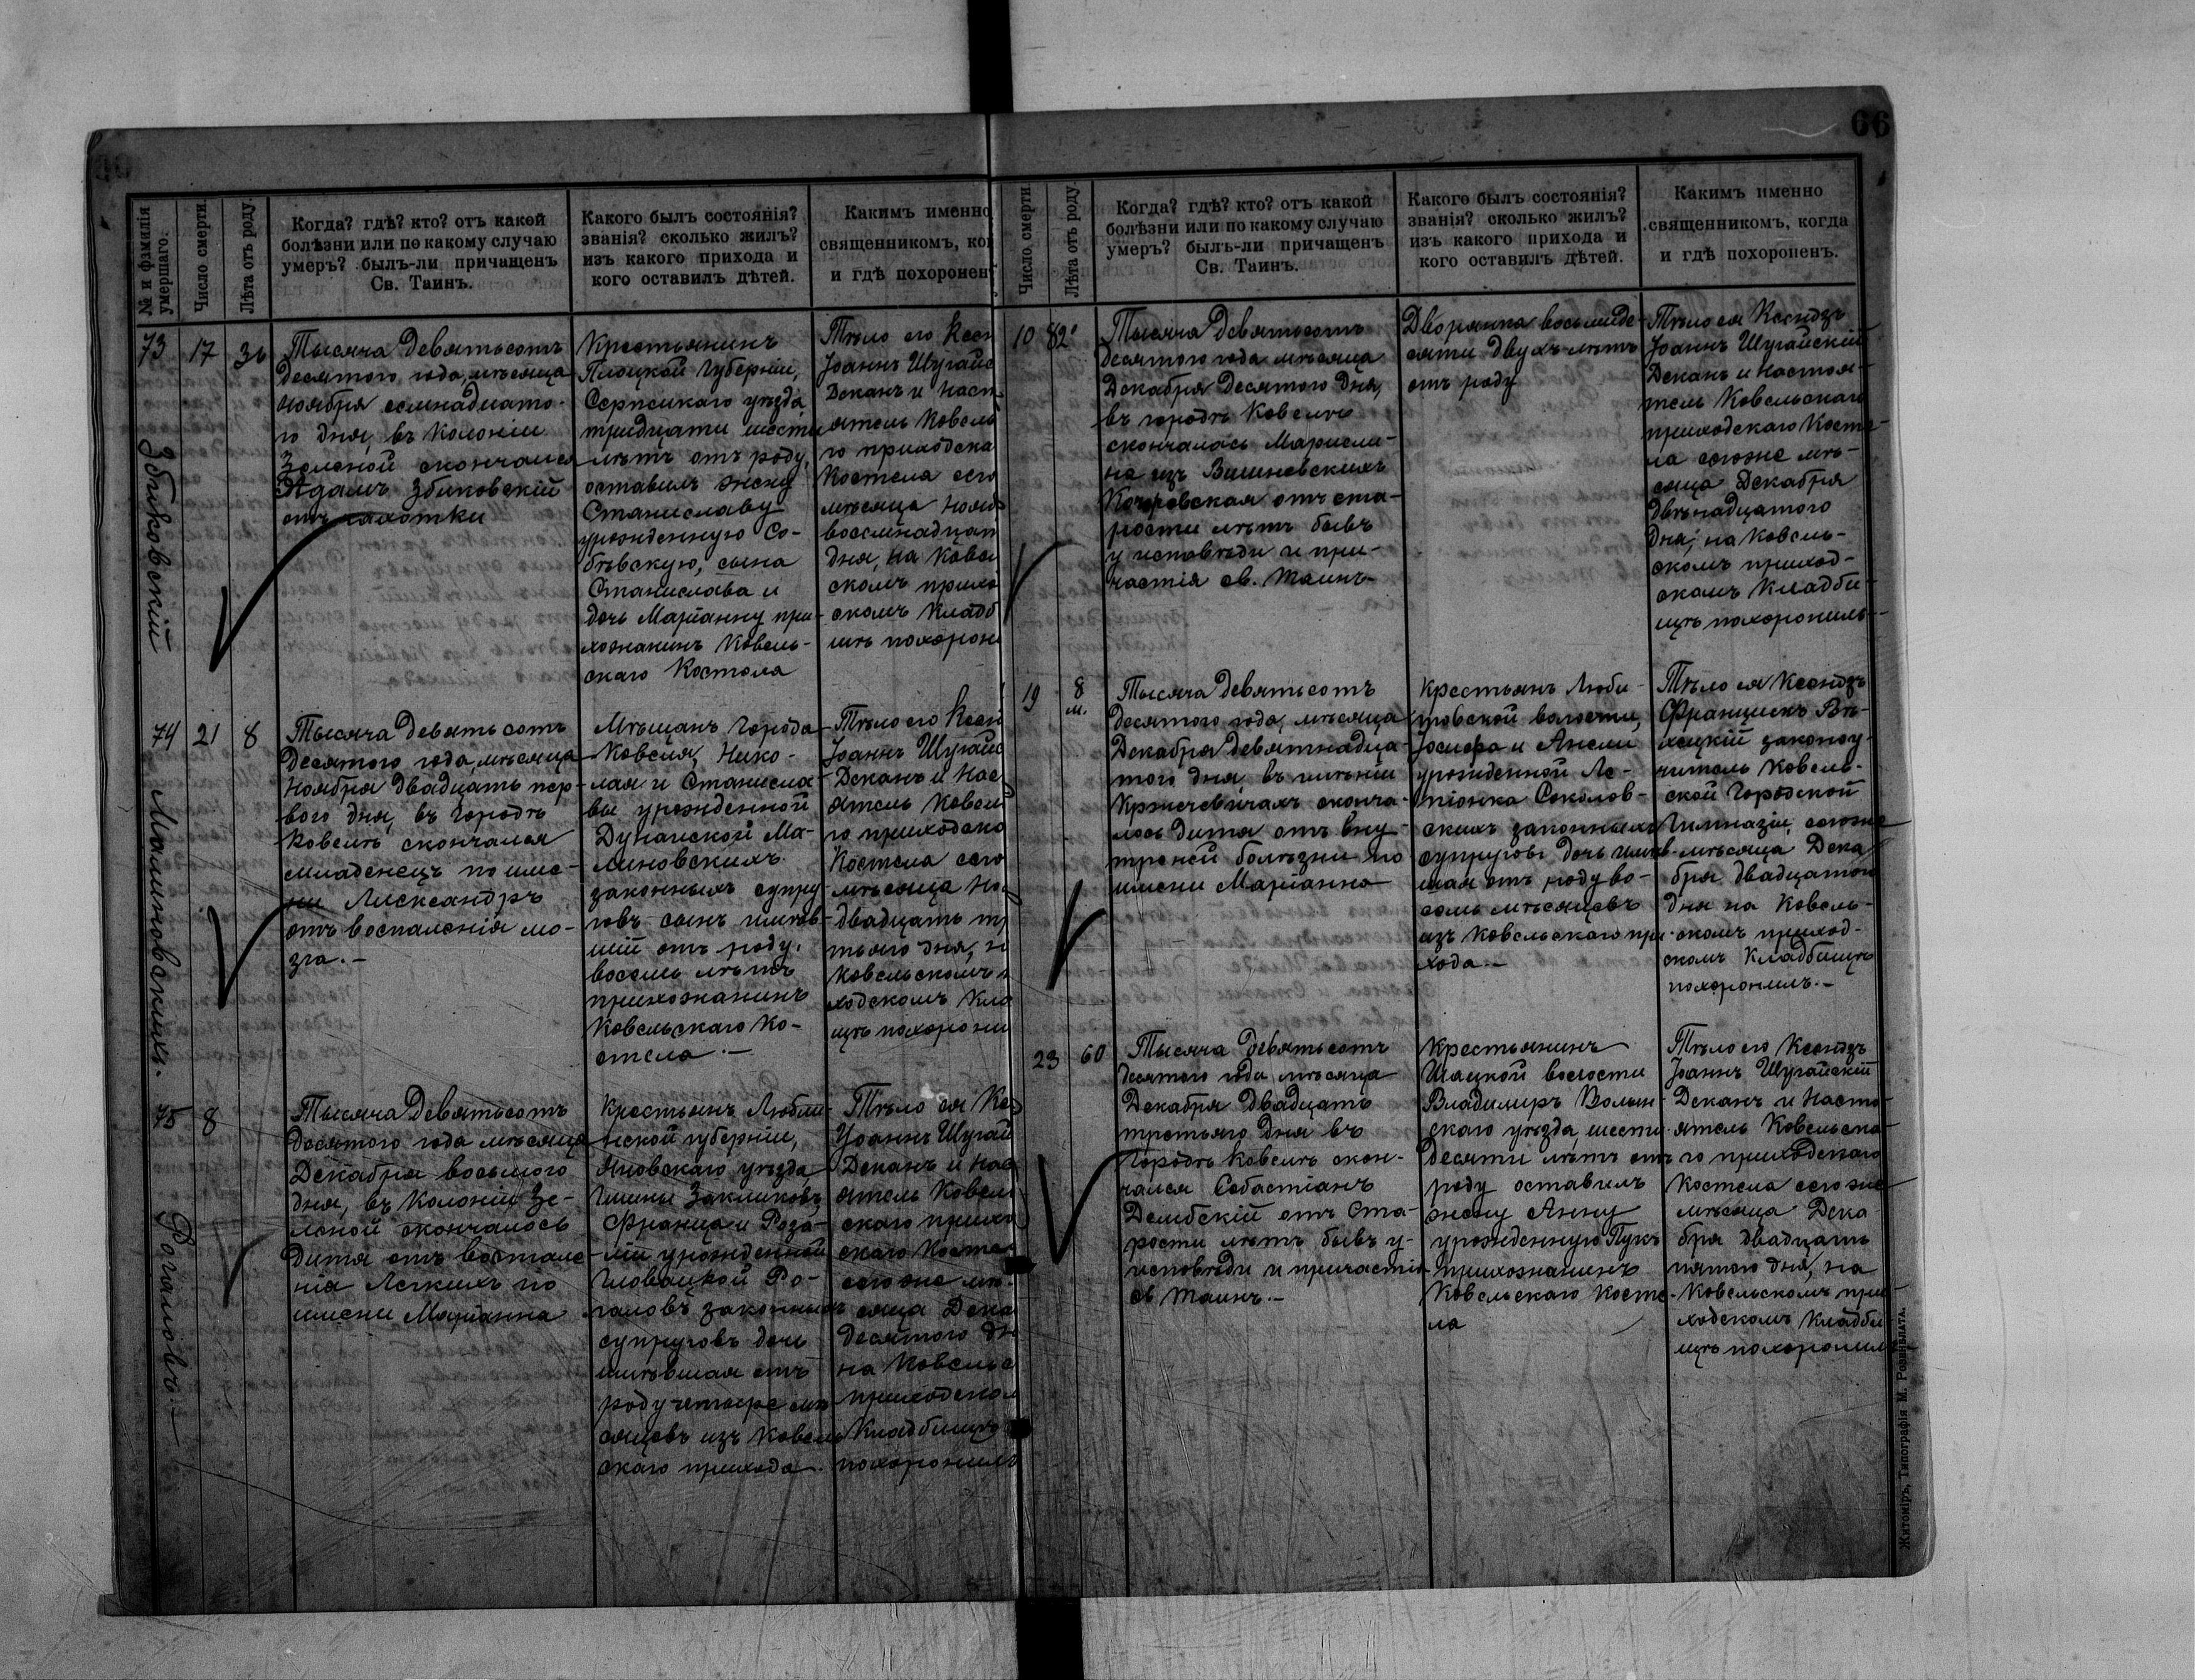 66
№ и фамилія умершаго.
Число смерти.
Лѣта отъ роду.
Когда? гдѣ? кто? отъ какой
болѣзни или по какому случаю
умеръ? былъ-ли причащенъ
Св. Таинъ.
Какого былъ состоянія?
званія? сколько жилъ?
изъ какого прихода и
кого оставилъ дѣтей.
Каким­ъ именно
священникомъ, ко
и гдѣ похоронен
73
Збиковскій
17
36
Тысяча девятьсотъ
десятого года, мѣсяца
Ноября семнадцато-
го дня, въ Колоніи
Зеленой скончался
Адамъ Збиковскій
отъ чахотки
Крестьянинъ
Плоцкой Губерніи,
Серпскаго уѣзда,
тридцати шести
лѣтъ отъ роду,
оставилъ жену
Станиславу
урожденную Со-
бѣвскую, сына
Станислава и
дочь Маріанну при-
хожанинъ Ковель-
скаго Костела
Тѣло его Ксен
Іоаннъ Шугайс
Деканъ и Наст
ятель Ковель
го приходска
Костела сего
мѣсяца Нояб
восемнадцат
дня, на Ковел
скомъ прихо
скомъ Кладб
щѣ похорони
74
Малиновскихъ.
21
8
Тысяча девятьсотъ
Десятого года, мѣсяца
Ноября двадцать пер-
вого дня, въ Городѣ
Ковелѣ скончался
младенецъ по име-
ни Александръ
отъ воспаленія мо-
зга.-
Мѣщанъ Города
Ковеля, Нико-
лая и Станисла-
вы урожденной
Дунайской Ма-
линовскихъ
законныхъ супру
говъ сынъ имѣв-
шій отъ роду
восемь лѣтъ
прихожанинъ
Ковельскаго Ко-
стела.-
Тѣло его Ксен
Іоаннъ Шугайс
Деканъ и Нас
ятель Ковел
го приходско
Костела сего
мѣсяца Но
двадцать тр
тьего дня, н
Ковельскомъ
ходскомъ Кла
щѣ похорони
75
Рогаловъ.-
8
Тысяча Девятьсотъ
Десятого года мѣсяца
Декабря восьмого
дня, въ Колоніи Зе-
леной скончалось
Дитя отъ воспале-
нія Легкихъ по
имени Маріанна
Крестьянъ Любли-
нской губерніи,
Яновскаго уѣзда,
Гмины Закликовъ,
Франца и Роза-
ліи урожденной
Гловацкой Ро-
галовъ законныхъ
супруговъ дочь
имѣвшая отъ
роду четыре мѣ-
сяцевъ изъ Ковель
скаго прихода.
Тѣло ея Ксе
Іоаннъ Шугай
Деканъ и Нас
ятель Ковель
скаго прихо
скаго Костел
сего же мѣ-
сяца Дека
Десятого дн
на Ковельс
приходском
Кладбищѣ
похоронилъ
Число смерти.
Лѣта отъ роду.
Когда? гдѣ? кто? отъ какой
болѣзни или по какому случаю
умеръ? былъ-ли причащенъ
Св. Таинъ.
Какого былъ состоянія?
званія? сколько жилъ?
изъ какого прихода и
кого оставилъ дѣтей.
Какимъ именно
священникомъ, когда
и гдѣ похороненъ.
10
82
Тысяча Девятьсотъ
десятого года мѣсяца
Декабря Десятого Дня,
въ городѣ Ковелѣ
скончалась Марцели-
на изъ Вишневскихъ
Кочоровская отъ ста-
рости лѣтъ бывъ
у исповѣди и при-
частія св. Таинъ-
Дворянка восьмиде-
сяти двухъ лѣтъ
отъ роду
Тѣло ея Ксендзъ
Іоаннъ Шугайскій
Деканъ и Настоя-
тель Ковельскаго
приходскаго Косте-
ла сегоже мѣ-
сяца Декабря
двѣнадцатого
дня, на Ковель-
скомъ приход-
скомъ Кладби-
щѣ похоронилъ-
19
8
м.
Тысяча Девятьсотъ
десятого года, мѣсяца
Декабря девятнадца-
того дня въ имѣніи
сконча-
лось дитя отъ вну-
тренней болѣзни по
имени Маріанна
Крестьянъ Люби-
товской волости,
Іосифа и Анели
урожденной Ле-
піонка Соколов-
скихъ законныхъ
супруговъ дочь имѣв-
шая отъ роду во-
семь мѣсяцевъ
изъ Ковельскаго при-
хода.-
Тѣло ея Ксендзъ
Францискъ
законоу-
читель Ковель-
ской Городской
Гимназіи, сегоже
мѣсяца Дека
бря двадцатого
дня на Ковель-
скомъ приход-
скомъ Кладбищѣ
похоронилъ.-
23
60
Тысяча девятьсотъ
десятого года мѣсяца
Декабря Двадцать
третьяго дня въ
Городѣ Ковелѣ скон-
чался Себастіанъ
Дембскій отъ ста-
рости лѣтъ бывъ у
исповѣди и причастія
св Таинъ.-
Крестьянинъ
Шацкой волости
Владимиръ Волын-
скаго уѣзда, шести-
десяти лѣтъ отъ
роду оставилъ
жену Анну
урожденную Пукъ
прихожанинъ
Ковельскаго Косте-
ла
Тѣло его Ксендзъ
Іоаннъ Шугайскій
Деканъ и Насто-
ятель Ковельска-
го приходскаго
Костела сегоже
мѣсяца Дека-
бря двадцать
пятого дня, на
Ковельскомъ при-
ходскомъ Кладби-
щѣ похоронилъ
Житоміръ, Типографія М. Розенблата.